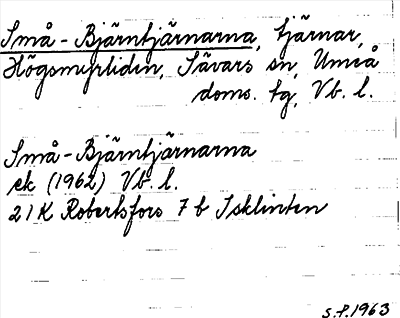 Små-Bjärntjärnarna, tjärnar,
Högsmyrliden, Sävars sn, Umeå
doms. tg, Vb. l.
Små-Bjärntjärnarna
ek (1962) Vb. l.
21K Robertsfors 7 b Isklinten
S.P. 1963